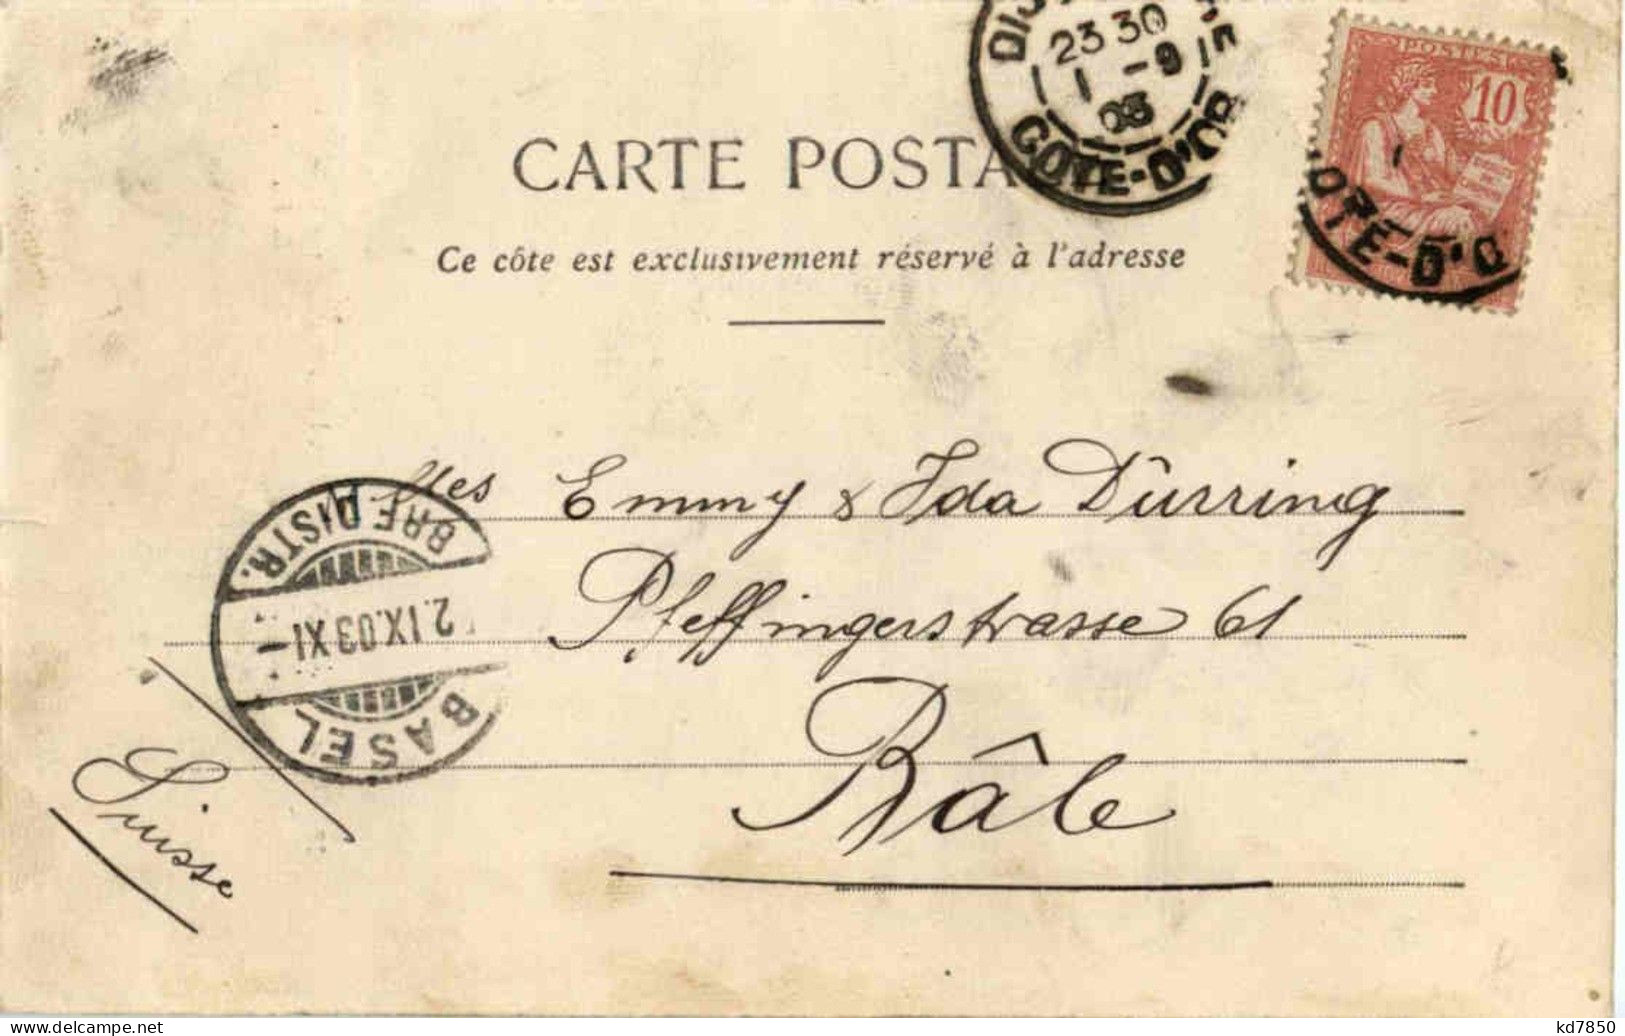 23 30
1 -9
03
COTE-D'OR
POSTES
10
OTE-D'O
CARTE POSTA
Ce côte est exclusivement réservé à l'adresse
lles Emmy & Ida Dürring
Pfeffingerstrasse 61
Bâle
Suisse
BASEL
2.IX.03 XI-
BRF. DISTR.
kd7850